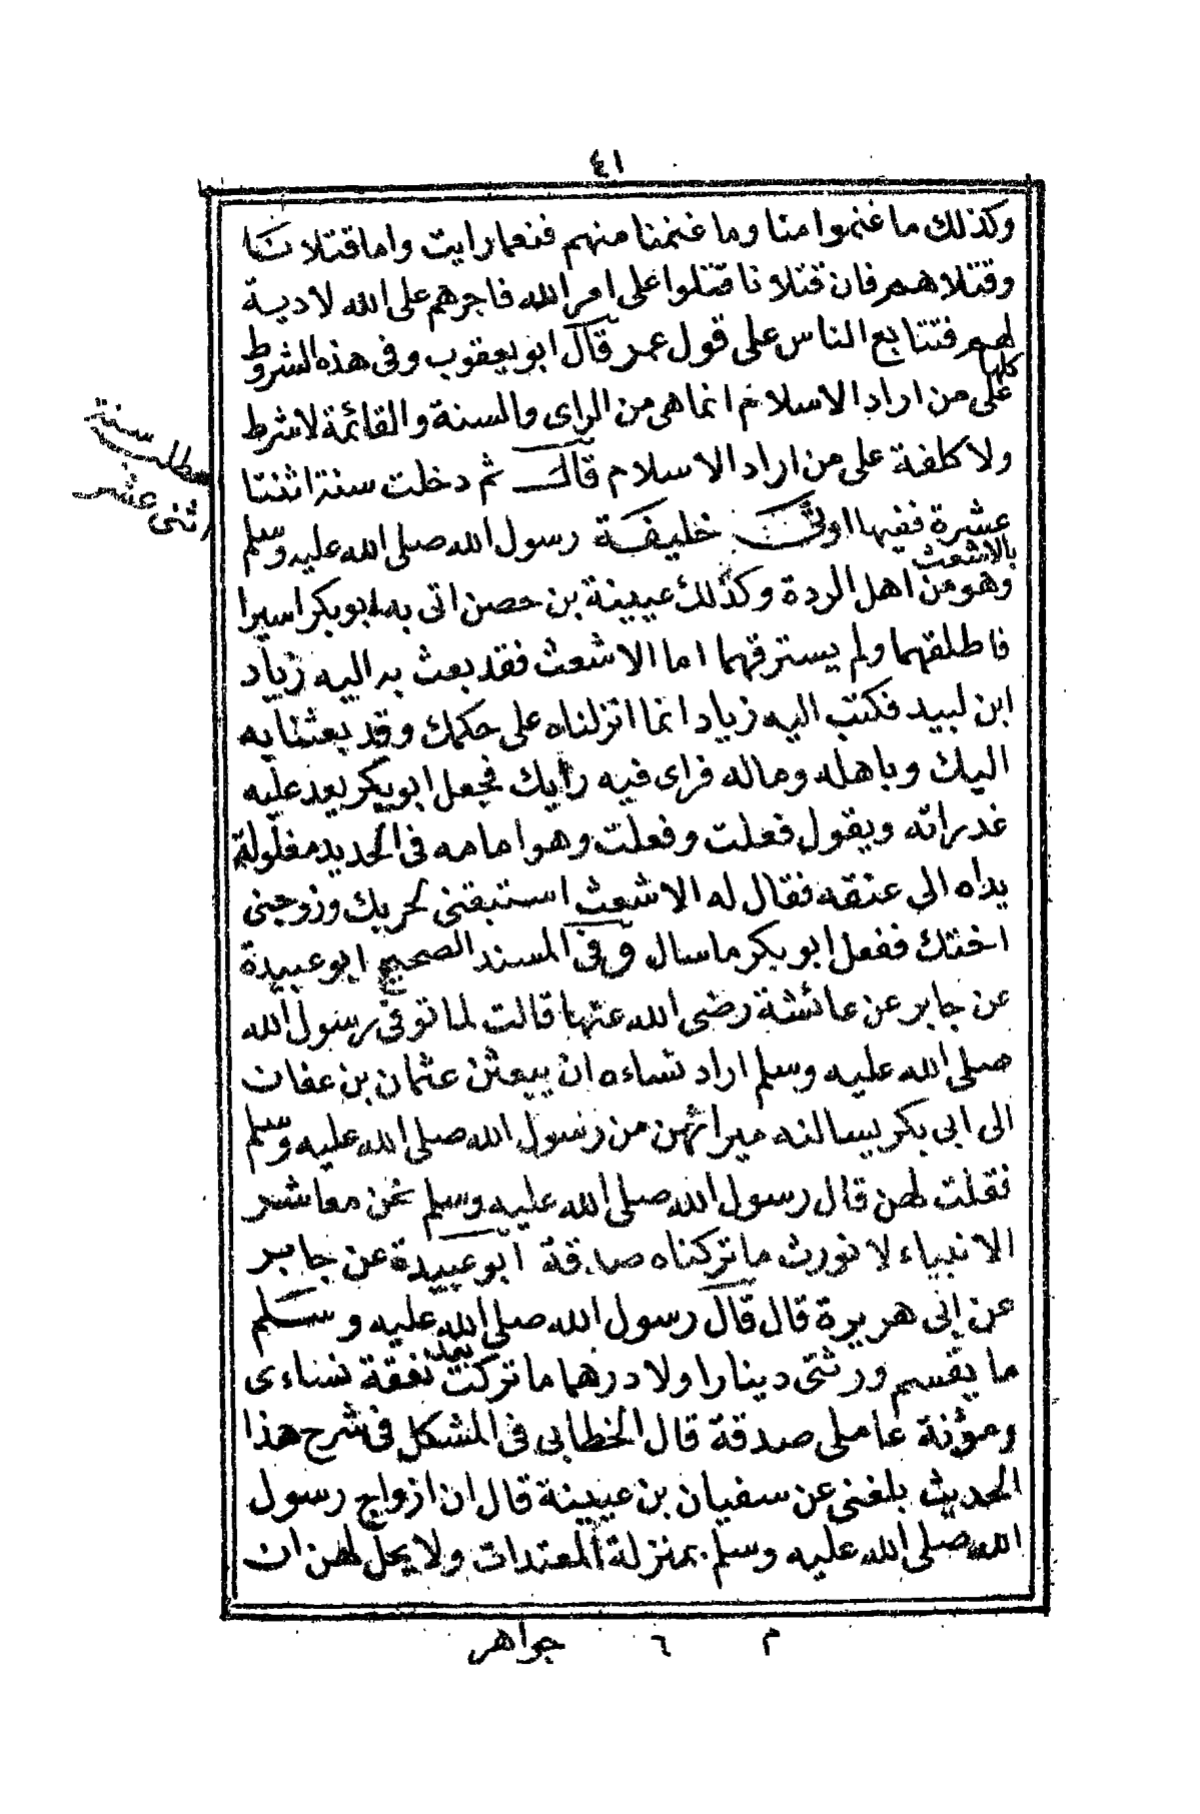 ٤١
وكذلك ما غنموا منا وما غنمنا منهم فنعما رايت واما قتلانا
وقتلاهم فان قتلانا قتلوا على امر الله فاجرهم على الله لادية
لهم فتتابع الناس على قول عمر قال ابو يعقوب وفى هذه الشروط
كلها
على من اراد الاسلام انما هى من الراى والسنة والقائمة لاشرط
ولا كلفة على من اراد الاسلام قال ثم دخلت سنة اثنتا
مطلب سنة
اثنى عشر
عشرة ففيها اوتى خليفة رسول الله صلى الله عليه وسلم
بالاشعث
وهو من اهل الردة وكذلك عيينة بن حصن اتى به ابو بكر اسيرا
فاطلقهما ولم يسترقهما اما الاشعث فقد بعث به اليه زياد
ابن لبيد فكتب اليه زياد انما انزلناه على حكمك وقد بعثنا به
اليك وباهله وماله فراى فيه رايك فجعل ابو بكر يعد عليه
غدراته ويقول فعلت وفعلت وهو امامه فى الحديد مغلولة
يداه الى عنقه فقال له الاشعث استبقنى لحربك وزوجنى
اختك ففعل ابو بكر ما سال وفى المسند الصحيح ابو عبيدة
عن جابر عن عائشة رضى الله عنها قالت لما توفى رسول الله
صلى الله عليه وسلم اراد نساءه ان يبعثن عثمان بن عفان
الى ابى بكر يسالنه ميراثهن من رسول الله صلى الله عليه وسلم
فقلت لهن قال رسول الله صلى الله عليه وسلم نحن معاشر
الانبياء لا نورث ما تركناه صدقة ابو عبيدة عن جابر
عن ابى هريرة قال قال رسول الله صلى الله عليه وسلم
بعد
ما يقسم ورثتى دينارا ولا درهما ما تركت نفقة نساءى
ومؤنة عاملى صدقة قال الخطابى فى المشكل فى شرح هذا
الحديث بلغنى عن سفيان بن عيينة قال ان ازواج رسول
الله صلى الله عليه وسلم بمنزلة المعتدات ولا يحل لهن ان
م ٦ جواهر